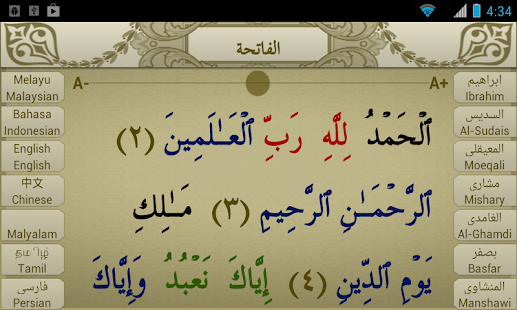 4:34
الفاتحة
A-
A+
Melayu
Malaysian
Bahasa
Indonesian
English
English
中文
Chinese
Malyalam
தமிழ்
Tamil
فارسى
Persian
ٱلْحَمْدُ لِلَّهِ رَبِّ ٱلْعَـٰلَمِينَ ﴿٢﴾
ٱلرَّحْمَـٰنِ ٱلرَّحِيمِ ﴿٣﴾ مَـٰلِكِ
يَوْمِ ٱلدِّينِ ﴿٤﴾ إِيَّاكَ نَعْبُدُ وَإِيَّاكَ
ابراهيم
Ibrahim
السديس
Al-Sudais
المعيقلى
Moeqali
مشارى
Mishary
الغامدى
Al-Ghamdi
بصفر
Basfar
المنشاوى
Manshawi